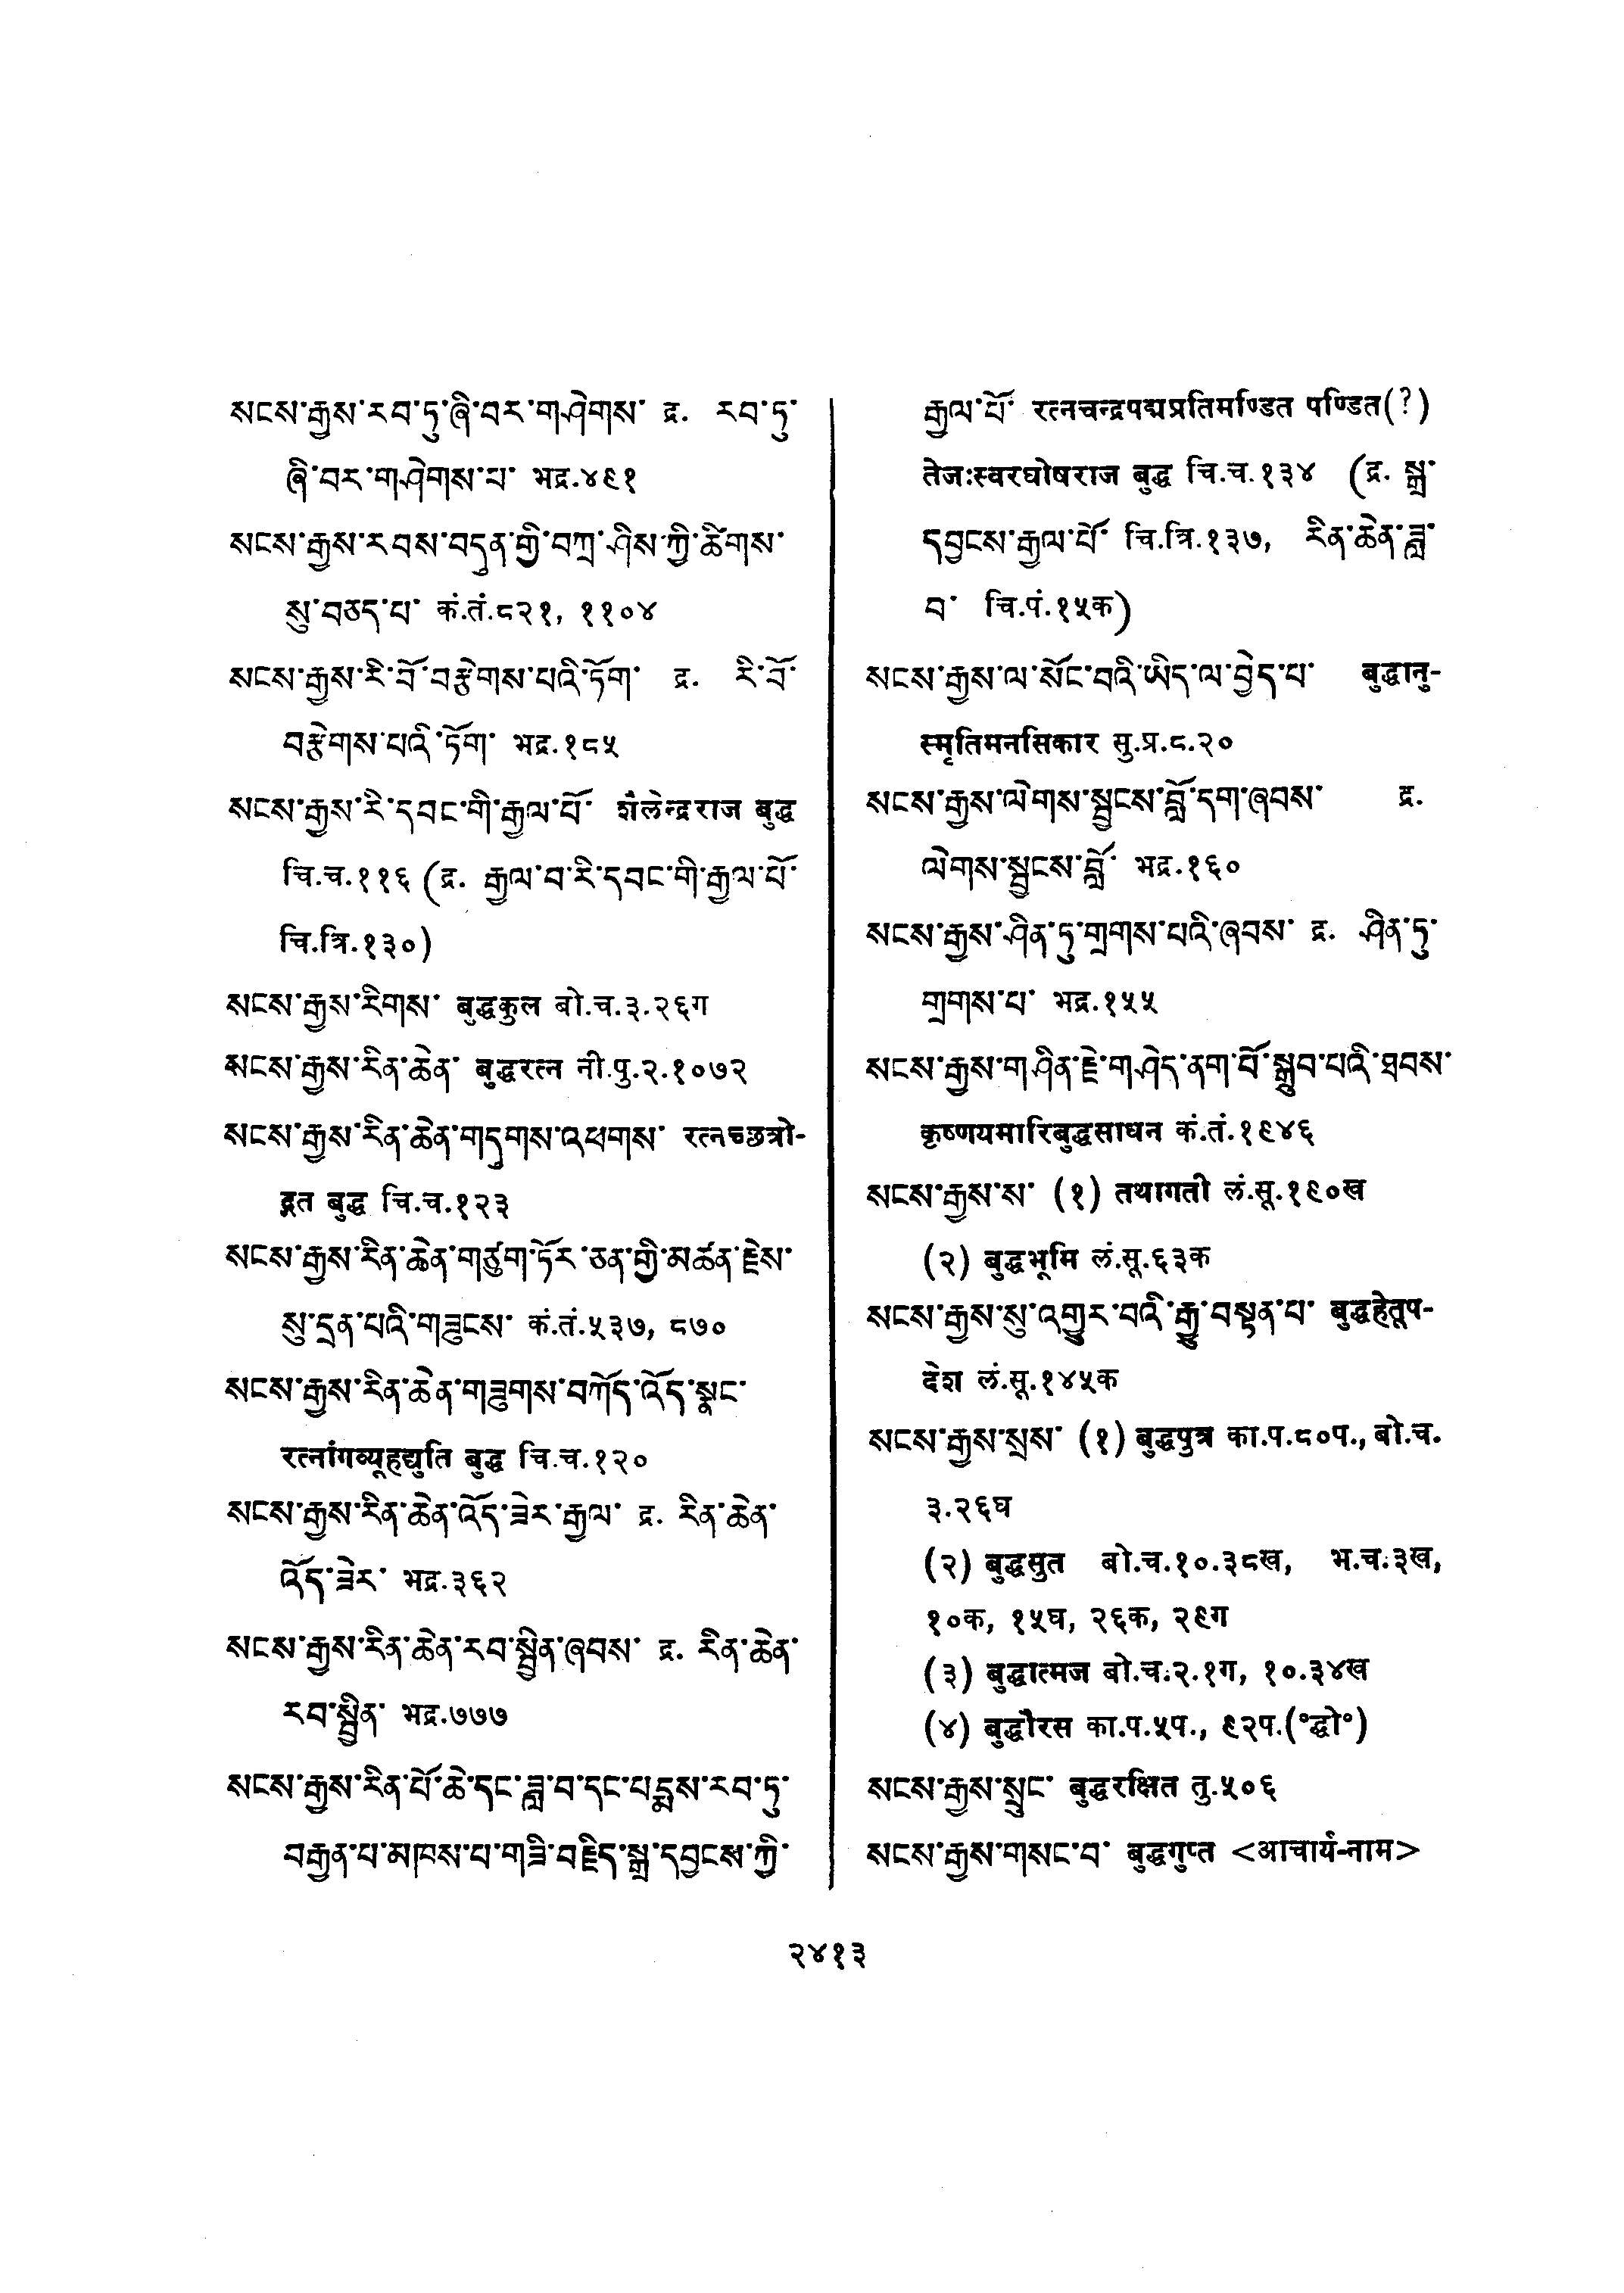 སངས་རྒྱས་རབ་ཏུ་ཞི་བར་གཤེགས་ द्र. རབ་ཏུ་
ཞི་བར་གཤེགས་པ་ भद्र.४९१
སངས་རྒྱས་རབས་བདུན་གྱི་བཀྲ་ཤིས་ཀྱི་ཚིགས་
སུ་བཅད་པ་ कं.तं.८२१, ११०४
སངས་རྒྱས་རི་བོ་བརྩེགས་པའི་ཏོག་ द्र. རི་བོ་
བརྩེགས་པའི་ཏོག་ भद्र.१८५
སངས་རྒྱས་རི་དབང་གི་རྒྱལ་པོ་ शैलेन्द्रराज बुद्ध
चि.च.११६ (द्र. རྒྱལ་བ་རི་དབང་གི་རྒྱལ་པོ་
चि.त्रि.१३०)
སངས་རྒྱས་རིགས་ बुद्धकुल बो.च.३.२६ग
སངས་རྒྱས་རིན་ཆེན་ बुद्धरत्न नी.पु.२.१०७२
སངས་རྒྱས་རིན་ཆེན་གདུགས་འཕགས་ रत्नच्छत्रो-
द्गत बुद्ध चि.च.१२३
སངས་རྒྱས་རིན་ཆེན་གཙུག་ཏོར་ཅན་གྱི་མཚན་རྗེས་
སུ་དྲན་པའི་གཟུངས་ कं.तं.५३७, ८७०
སངས་རྒྱས་རིན་ཆེན་གཟུགས་བཀོད་འོད་སྣང་
रत्नांगव्यूहद्युति बुद्ध चि.च.१२०
སངས་རྒྱས་རིན་ཆེན་འོད་ཟེར་རྒྱལ་ द्र. རིན་ཆེན་
འོད་ཟེར་ भद्र.३६२
སངས་རྒྱས་རིན་ཆེན་རབ་སྦྱིན་ཞབས་ द्र. རིན་ཆེན་
རབ་སྦྱིན་ भद्र.७७७
སངས་རྒྱས་རིན་པོ་ཆེ་དང་ཟླ་བ་དང་པདྨས་རབ་ཏུ་
བརྒྱན་པ་མཁས་པ་གཟི་བརྗིད་སྒྲ་དབྱངས་ཀྱི་
རྒྱལ་པོ་ रत्नचन्द्रपद्मप्रतिमण्डित पण्डित(?)
तेजःस्वरघोषराज बुद्ध चि.च.१३४ (द्र. སྒྲ་
དབྱངས་རྒྱལ་པོ་ चि.त्रि.१३७, རིན་ཆེན་ཟླ་
བ་ चि.पं.१५क)
སངས་རྒྱས་ལ་སོང་བའི་ཡིད་ལ་བྱེད་པ་ बुद्धानु-
स्मृतिमनसिकार सु.प्र.८.२०
སངས་རྒྱས་ལེགས་སྦྱངས་བློ་དག་ཞབས་ द्र.
ལེགས་སྦྱངས་བློ་ भद्र.१६०
སངས་རྒྱས་ཤིན་ཏུ་གྲགས་པའི་ཞབས་ द्र. ཤིན་ཏུ་
གྲགས་པ་ भद्र.१५५
སངས་རྒྱས་གཤིན་རྗེ་གཤེད་ནག་པོ་སྒྲུབ་པའི་ཐབས་
कृष्णयमारिबुद्धसाधन कं.तं.१९४६
སངས་རྒྱས་ས་ (१) तथागती लं.सू.१९०ख
(२) बुद्धभूमि लं.सू.६३क
སངས་རྒྱས་སུ་འགྱུར་བའི་རྒྱུ་བསྟན་པ་ बुद्धहेतूप-
देश लं.सू.१४५क
སངས་རྒྱས་སྲས་ (१) बुद्धपुत्र का.प.८०प., बो.च.
३.२६घ
(२) बुद्धसुत बो.च.१०.३८ख, भ.च.३ख,
१०क, १५घ, २६क, २९ग
(३) बुद्धात्मज बो.च.२.१ग, १०.३४ख
(४) बुद्धौरस का.प.५प., ९२प.(°द्धो°)
སངས་རྒྱས་སྲུང་ बुद्धरक्षित तु.५०६
སངས་རྒྱས་གསང་བ་ बुद्धगुप्त <आचार्य-नाम>
२४१३